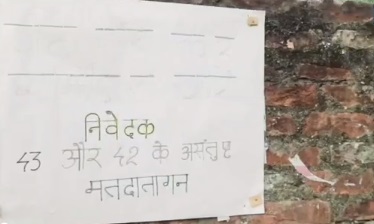 निवेदक
43 और 42 के असंतुष्ट
मतदातागन